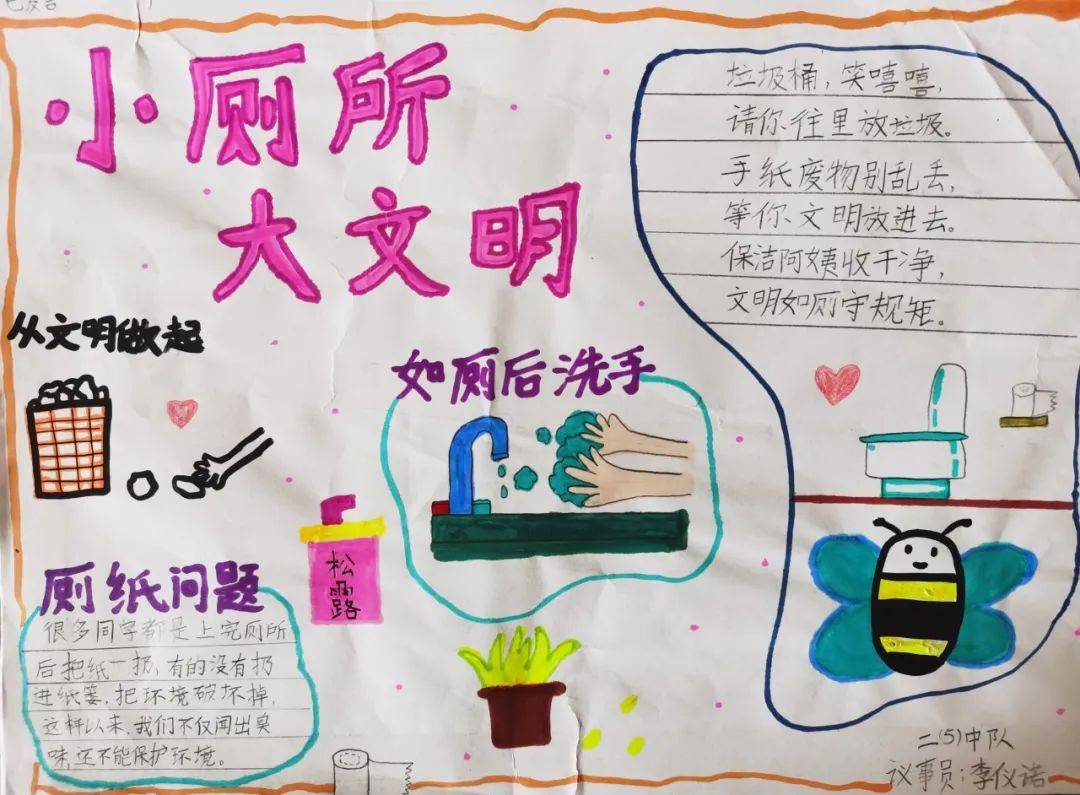 小厕所
大文明
垃圾桶，笑嘻嘻，
请你往里放垃圾。
手纸废物别乱丢，
等你文明放进去。
保洁阿姨收干净，
文明如厕守规矩。
从文明做起
如厕后洗手
松露
厕纸问题
很多同学都是上完厕所
后把纸一扔，有的没有扔
进纸篓，把环境破坏掉，
这样以来，我们不仅闻出臭
味，还不能保护环境。
二(5)中队
议事员：李仪诺